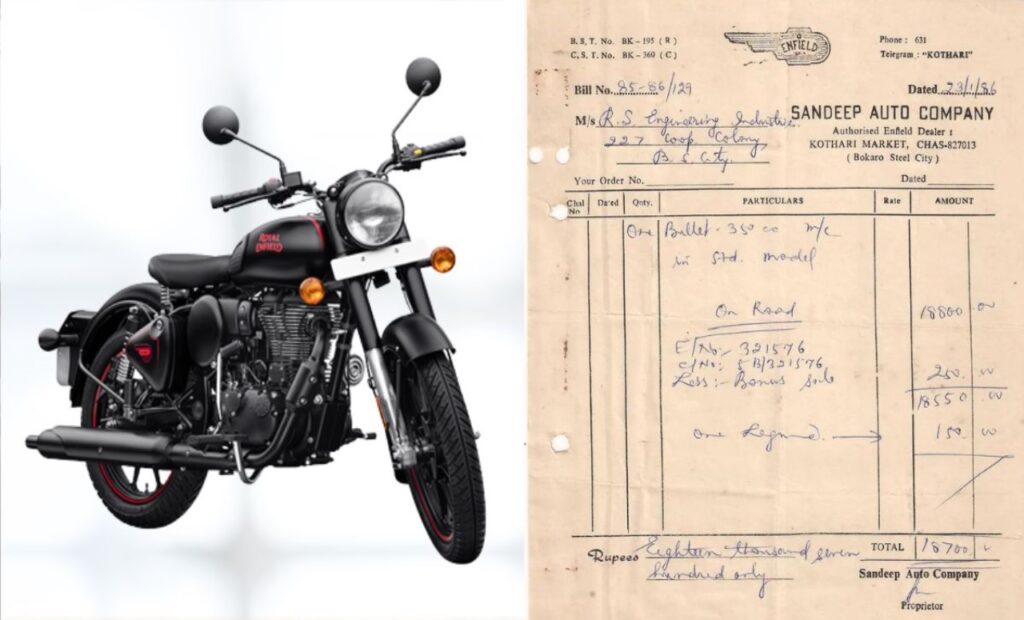 ROYAL
ENFIELD
B. S. T. No. BK-195 ( R )
C. S. T. No. BK-360 ( C )
ENFIELD
Phone : 631
Telegram : "KOTHARI"
Bill No. 85-86/129
Dated 23/1/86
M/s R. S. Engineering Industries
227 Coop. Colony
B. S. City.
SANDEEP AUTO COMPANY
Authorised Enfield Dealer :
KOTHARI MARKET, CHAS-827013
( Bokaro Steel City )
Your Order No.
Dated
Chal No
Dated
Qnty.
PARTICULARS
Rate
AMOUNT
One Bullet - 350 cc m/c
in Std. model
On Road 18800.00
E/No:- 321576
C/No: 5B/321576
Less :- Bonus 250.00
18550.00
one 150.00
Rupees Eighteen thousand seven
hundred only
TOTAL 18700
Sandeep Auto Company
Proprietor